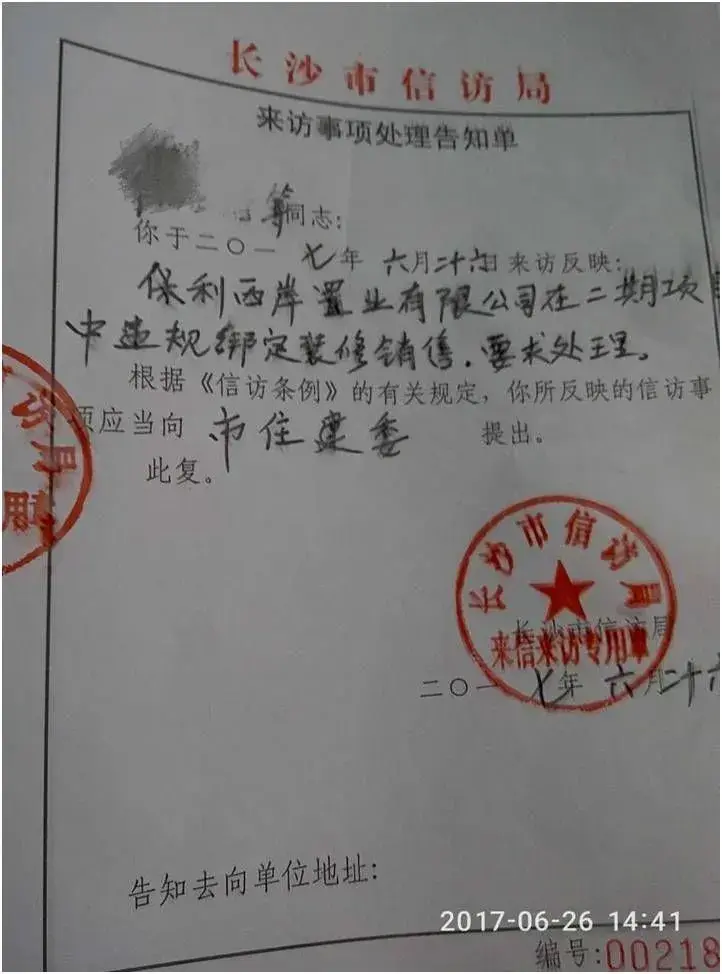 长沙市信访局
来访事项处理告知单
等同志：
你于二〇一七年六月二十六日来访反映：
保利西岸置业有限公司在二期项
中违规绑定装修销售，要求处理。
根据《信访条例》的有关规定，你所反映的信访事
项应当向市住建委提出。
此复。
访局
用章
长沙市信访局
来信来访专用章
长沙市信访局
二〇一七年六月二十六
告知去向单位地址：
2017-06-26 14:41
编号:00218